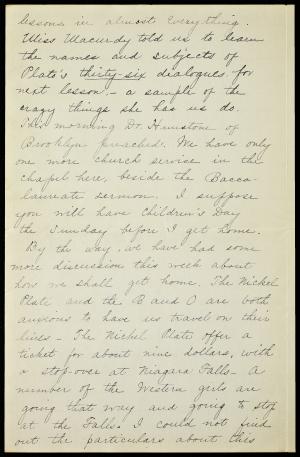 lessons in almost everything.
Miss Macurdy told us to learn
the names and subjects of
Plato's thirty-six dialogues for
next lesson - a sample of the
crazy things she has us do.
This morning Dr. Humstone of
Brooklyn preached. We have only
one more church service in the
chapel here, beside the Bacca-
laureate sermon. I suppose
you will have Children's Day
the Sunday before I get home.
By the way, we have had some
more discussion this week about
how we shall get home. The Nickel
Plate and the B and O are both
anxious to have us travel on their
lines - The Nickel Plate offer a
ticket for about nine dollars, with
a stop-over at Niagara Falls - A
number of the Western girls are
going that way and going to stop
at the Falls. I could not find
out the particulars about this